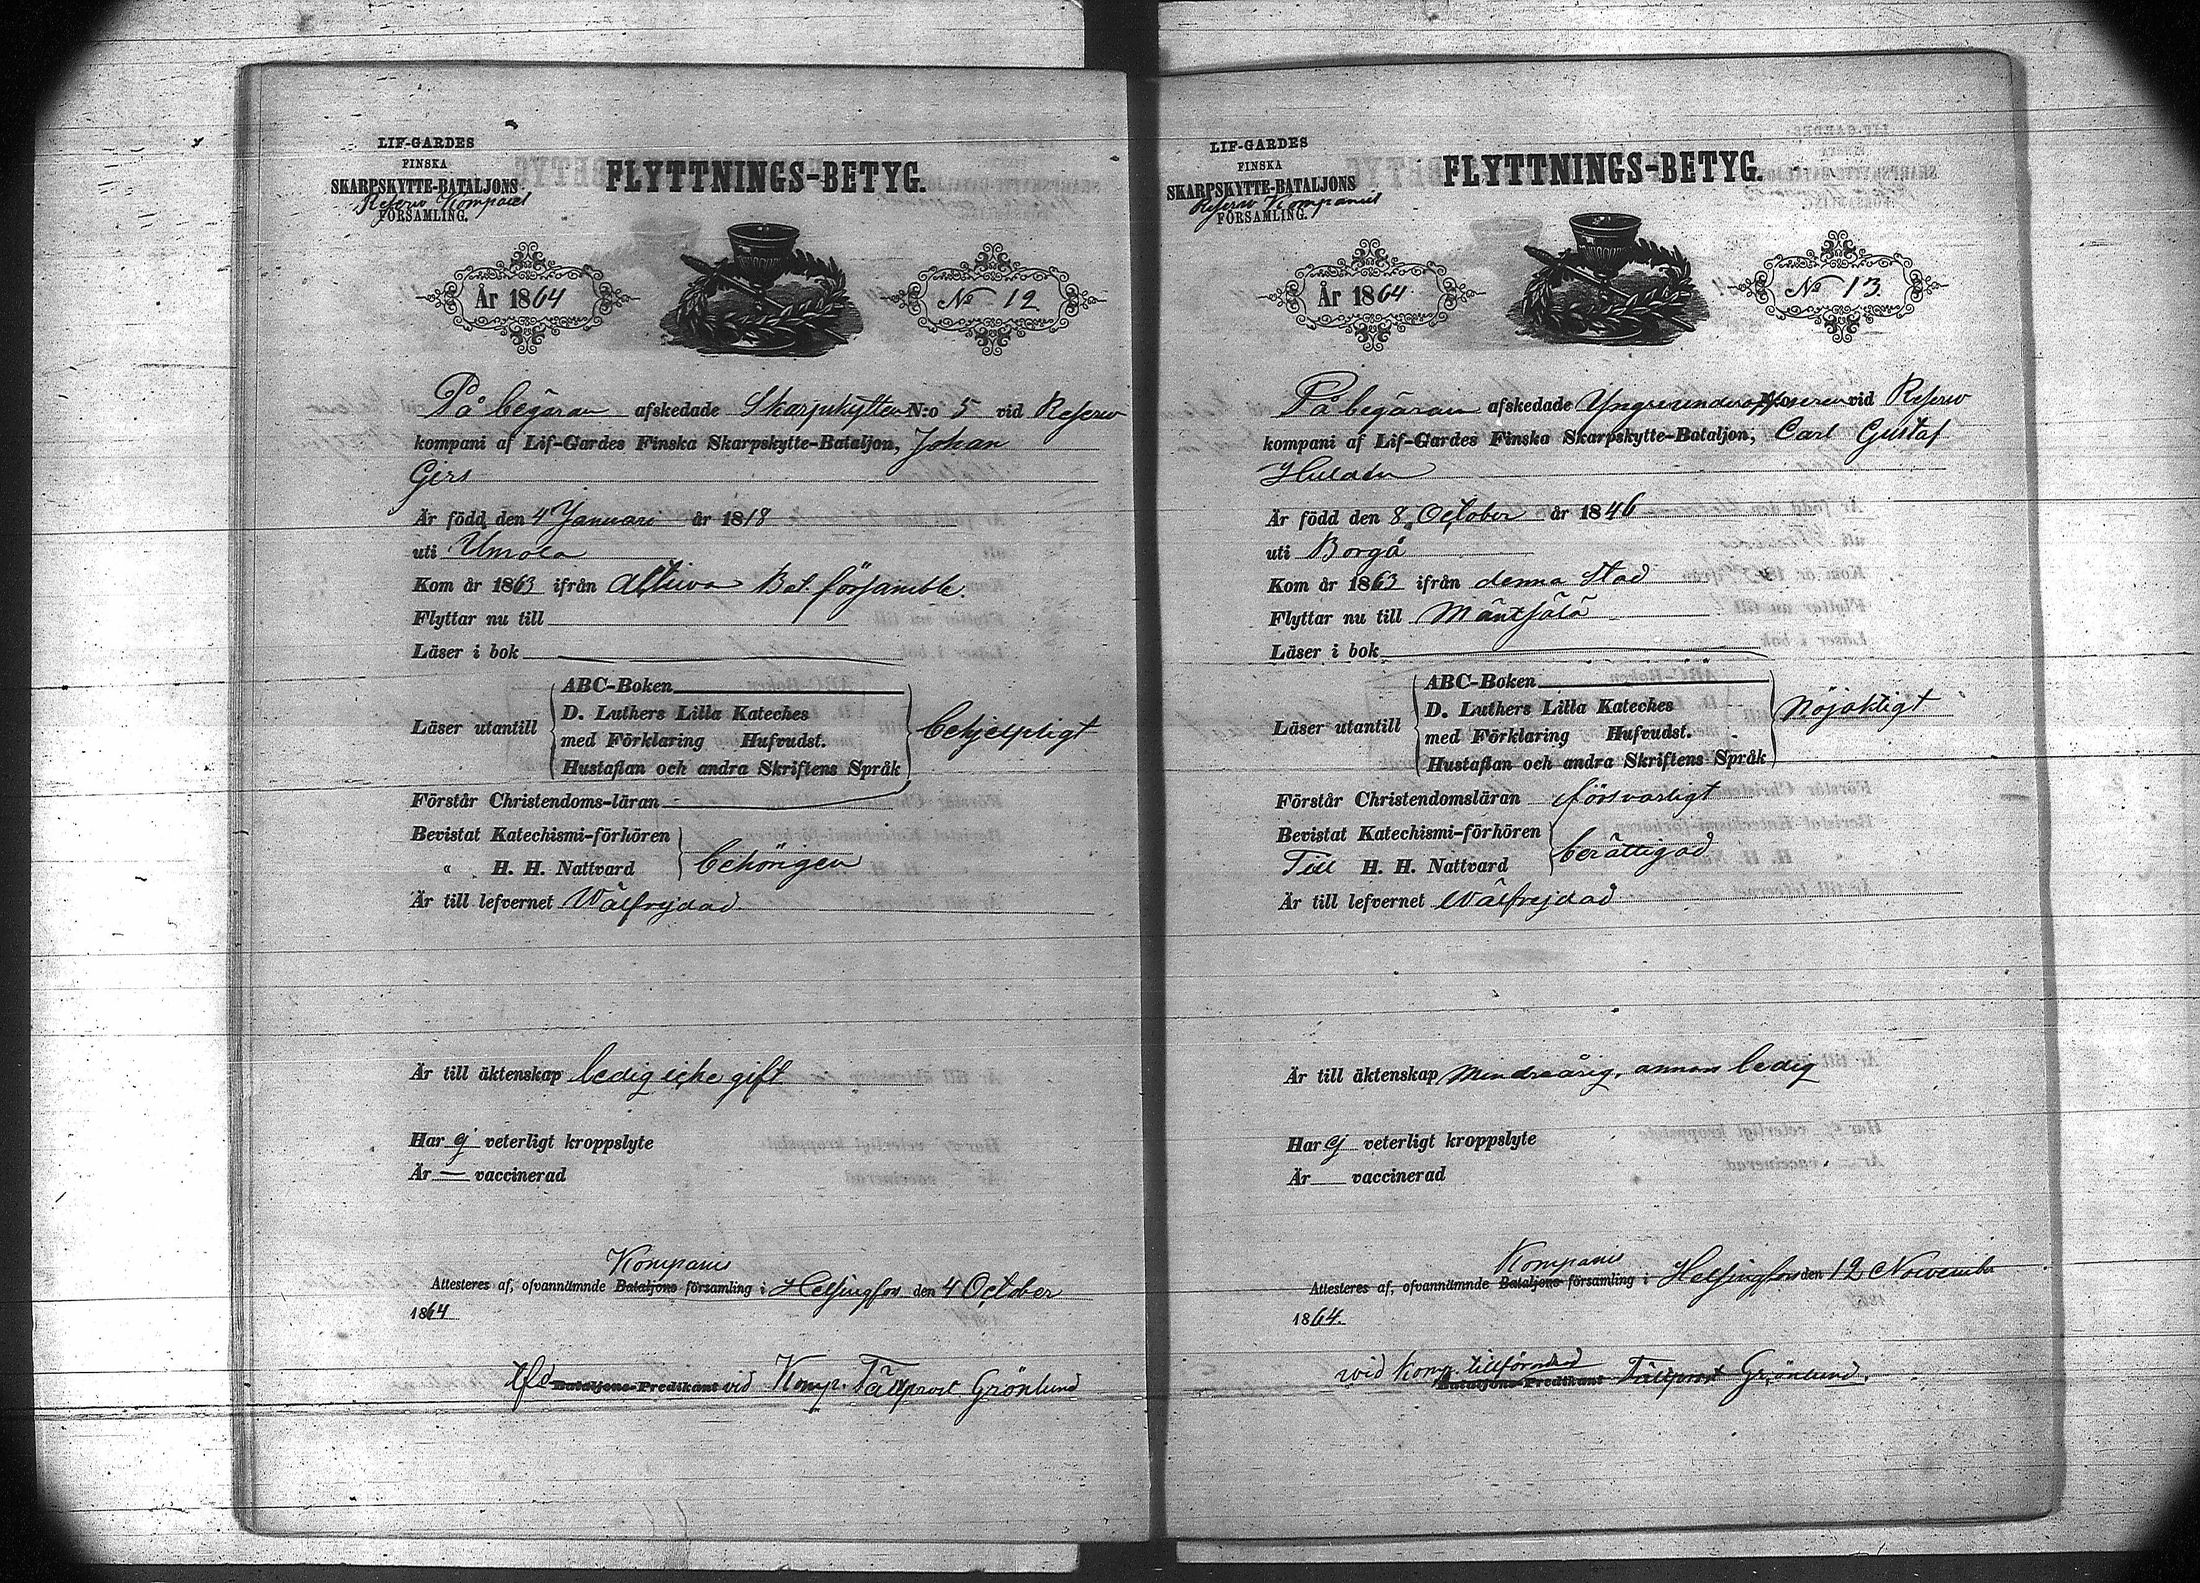 LIF-GARDES
FINSKA
SKARPSKYTTE-BATALJONS
Reserv Kompaniet
FÖRSAMLING.
FLYTTNINGS-BETYG.
År 1864
No 12
På begäran afskedade Skarpskytten N:o 5 vid Reserv
kompani af Lif-Gardes Finska Skarpskytte-Bataljon, Johan
Girs
Är född den 4 Januari år 1818
uti
Kom år 1863 ifrån Aktiva Bat. försambl.
Flyttar nu till
Läser i bok
ABC-Boken
D. Luthers Lilla Kateches
Läser utantill med Förklaring Hufvudst. behjelpligt
Hustaflan och andra Skriftens Språk
Förstår Christendoms-läran
Bevistat Katechismi-förhören
" H. H. Nattvard behörigen
Är till lefvernet Wälfrejdad
Är till äktenskap ledig icke gift
Har ej veterligt kroppslyte
Är — vaccinerad
Kompanis
Attesteres af, ofvannämnde Bataljons församling i Helsingfors den 4 October
1864
Bataljons-Predikant vid Komp. Fältprost Grönlund
LIF-GARDES
FINSKA
SKARPSKYTTE-BATALJONS
Reserv Kompaniet
FÖRSAMLING.
FLYTTNINGS-BETYG.
År 1864
No 13
På begäran afskedade Yngreunderofficeren vid Reserv
kompani af Lif-Gardes Finska Skarpskytte-Bataljon, Carl Gustaf
Hulden
Är född den 8 October år 1846
uti Borgå
Kom år 1863 ifrån denna Stad
Flyttar nu till Mäntsälä
Läser i bok
ABC-Boken
D. Luthers Lilla Kateches
Läser utantill med Förklaring Hufvudst. Nöjaktigt
Hustaflan och andra Skriftens Språk
Förstår Christendomsläran försvarligt
Bevistat Katechismi-förhören
Till H. H. Nattvard berättigad
Är till lefvernet Wälfrejdad
Är till äktenskap Mindreårig, annars ledig
Har ej veterligt kroppslyte
Är — vaccinerad
Kompanis
Attesteres af, ofvannämnde Bataljons församling i Helsingfors den 12 November
1864.
vid Komp. tillförordnad
Bataljons-Predikant Fältprost Grönlund.